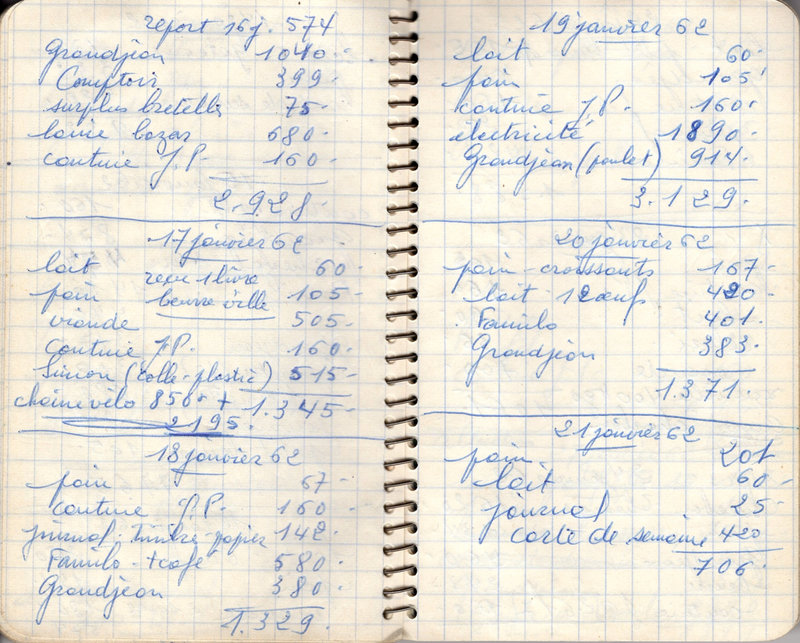 report 16 j. 574
Grandjean 1040.-
Comptoir 399.-
surplus bretelles 75-
laine bazar 680.-
cantine J.P. 160.-
2.928.-
17 janvier 62
lait reçu 1 livre 60-
pain beurre ville 105-
viande 505-
cantine J.P. 160.-
Simon (colle-plastic) 515-
chaine vélo 850- + 1.345-
2195.
18 janvier 62
pain 67-
cantine J.P. 160.-
journal-timbre-papier 142-
Familo + café 580-
Grandjean 380-
1.329.
19 janvier 62
lait 60-
pain 105-
cantine J.P. 160.
électricité 1890.
Grandjean (poulet) 914.
3.129.
20 janvier 62
pain-croissants 167-
lait-12 œufs 420-
Familo 401.
Grandjean 383.
1.371.
21 janvier 62
pain 201
lait 60-
journal 25-
carte de semaine 420
706.